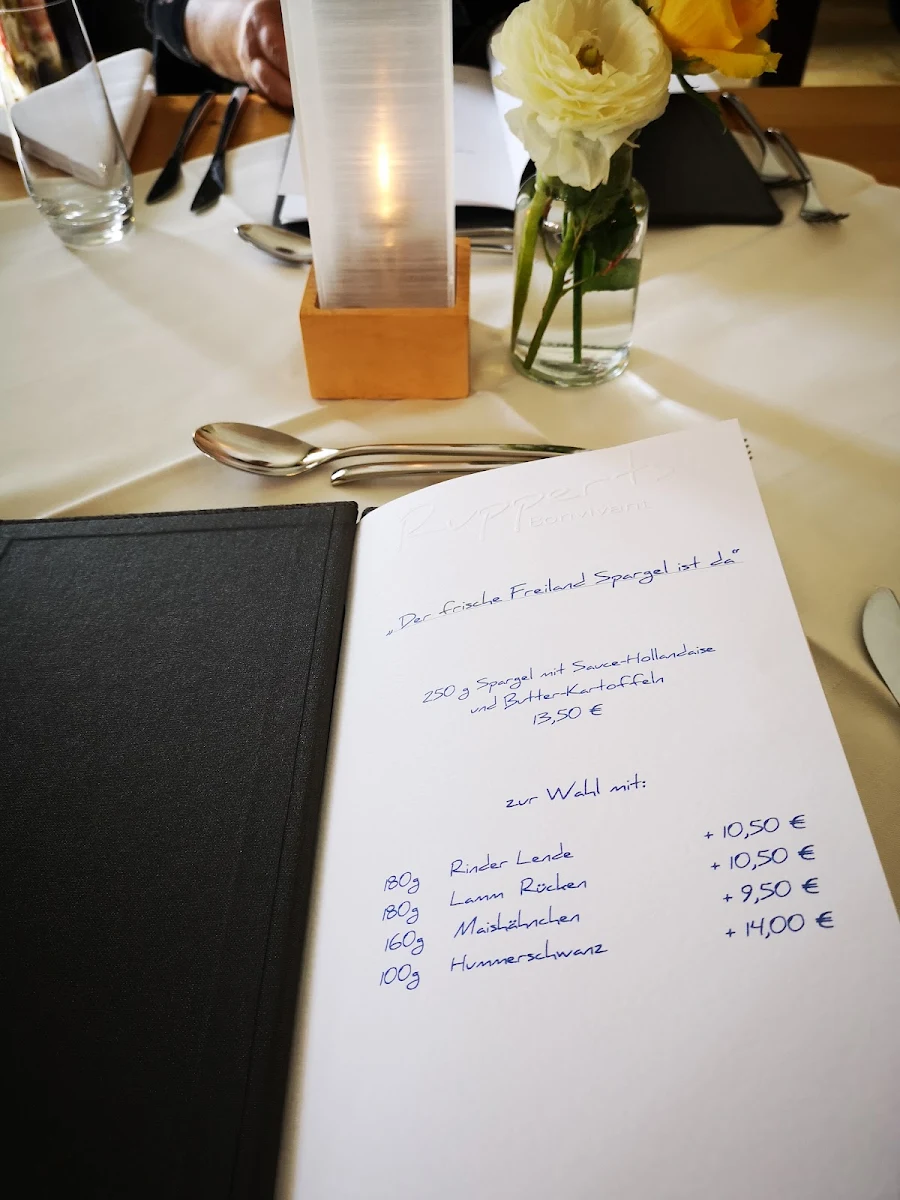 Ruppert's
Bonvivant
„Der frische Freiland Spargel ist da“
250 g Spargel mit Sauce-Hollandaise
und Butter-Kartoffeln
13,50 €
zur Wahl mit:
180g Rinder Lende + 10,50 €
180g Lamm Rücken + 10,50 €
160g Maishähnchen + 9,50 €
100g Hummerschwanz + 14,00 €